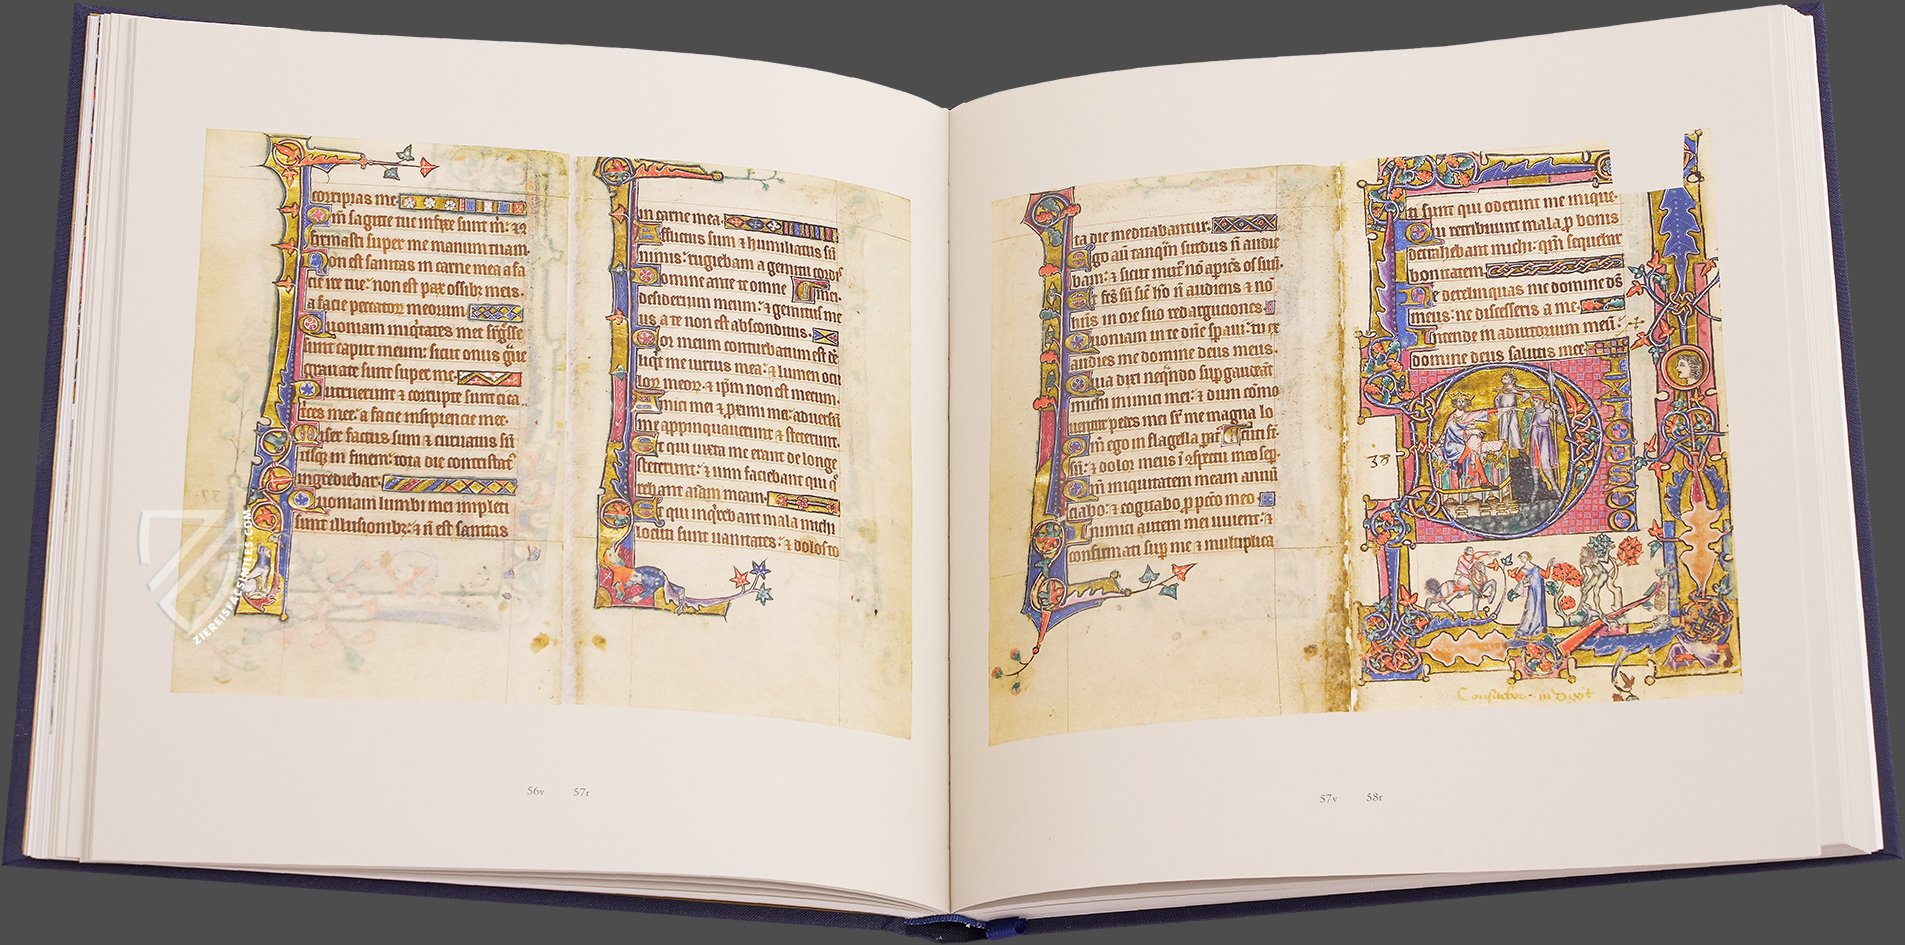 corripias me
Qm̄ sagitte tue infixe sunt m̄: ⁊ 
firmasti super me manum tuam.
Non est sanitas in carne mea a fa
cie ire tue: non est pax ossibꝫ meis.
a facie peccatoꝝ meorum
Quoniam iniq̄tates mee
sunt caput meum: sicut onus
grauate sunt super me
Putruerunt & corrupte sunt cica
trices mee: a facie insipiencie mee.
Miser factus sum ⁊ curuatus sū
usqȝ in finem: tota die contristatꝰ
ingrediebar
Quoniam lumbi mei impleti
sunt illusionibꝫ: ⁊ n̄ est sanitas
in carne mea.
Afflictus sum ⁊ humiliatus sū
nimis: rugiebam a gemitu cordis
mei.
Domine ante te omne
desiderium meum: & gemitus me
us a te non est absconditus.
Cor meum conturbatum est
me uirtus mea: & lumen ocu
loꝝ meoꝝ: & ip̄m non est mecum.
Amici mei ⁊ ꝓximi mei: aduersū
me appinquauerunt & steterunt.
Et qui iuxta me erant de longe
steterunt: & uim faciebant qui q̄
rebant aīam meam.
Et qui inq̄rebant mala michi
locuti sunt uanitates: & dolos to
ta die meditabantur.
Ego aū tanq̄m surdus n̄ audie
bam: & sicut mutꝰ nō apīes os suū.
Et fc̄s sū sic̄ hō n̄ audiens & nō
hn̄s in ore suo redarguciones.
Quoniam in te dn̄e sp̄aui: tu ex
audies me domine deus meus.
Quia dixi neq̄ndo sup̄gaudeāt
michi inimici mei: & dum cōmo
uentur pedes mei sr̄ me magna lo
cuti sr̄.
Qm̄ ego in flagella patꝰ
sū: & dolor meus ī ꝯspectu meo sep̄.
Qm̄ iniquitatem meam annū
ciabo: & cogitabo ꝓ pc̄to meo.
Inimici autem mei uiuent: &
confirmati sup̄ me & multiplica
ti sunt qui oderunt me inique.
Qui retribuunt mala ꝓ bonis
detrahebant michi: qm̄ sequebar
bonitatem.
Ne derelinquas me domine dꝰs
meus: ne discesseris a me.
Intende in adiutorium meū:
domine deus salutis mee.
38
Confitebor. in Dixit
56v 57r
57v 58r
37.
ZIEREIS FACSIMILES.COM